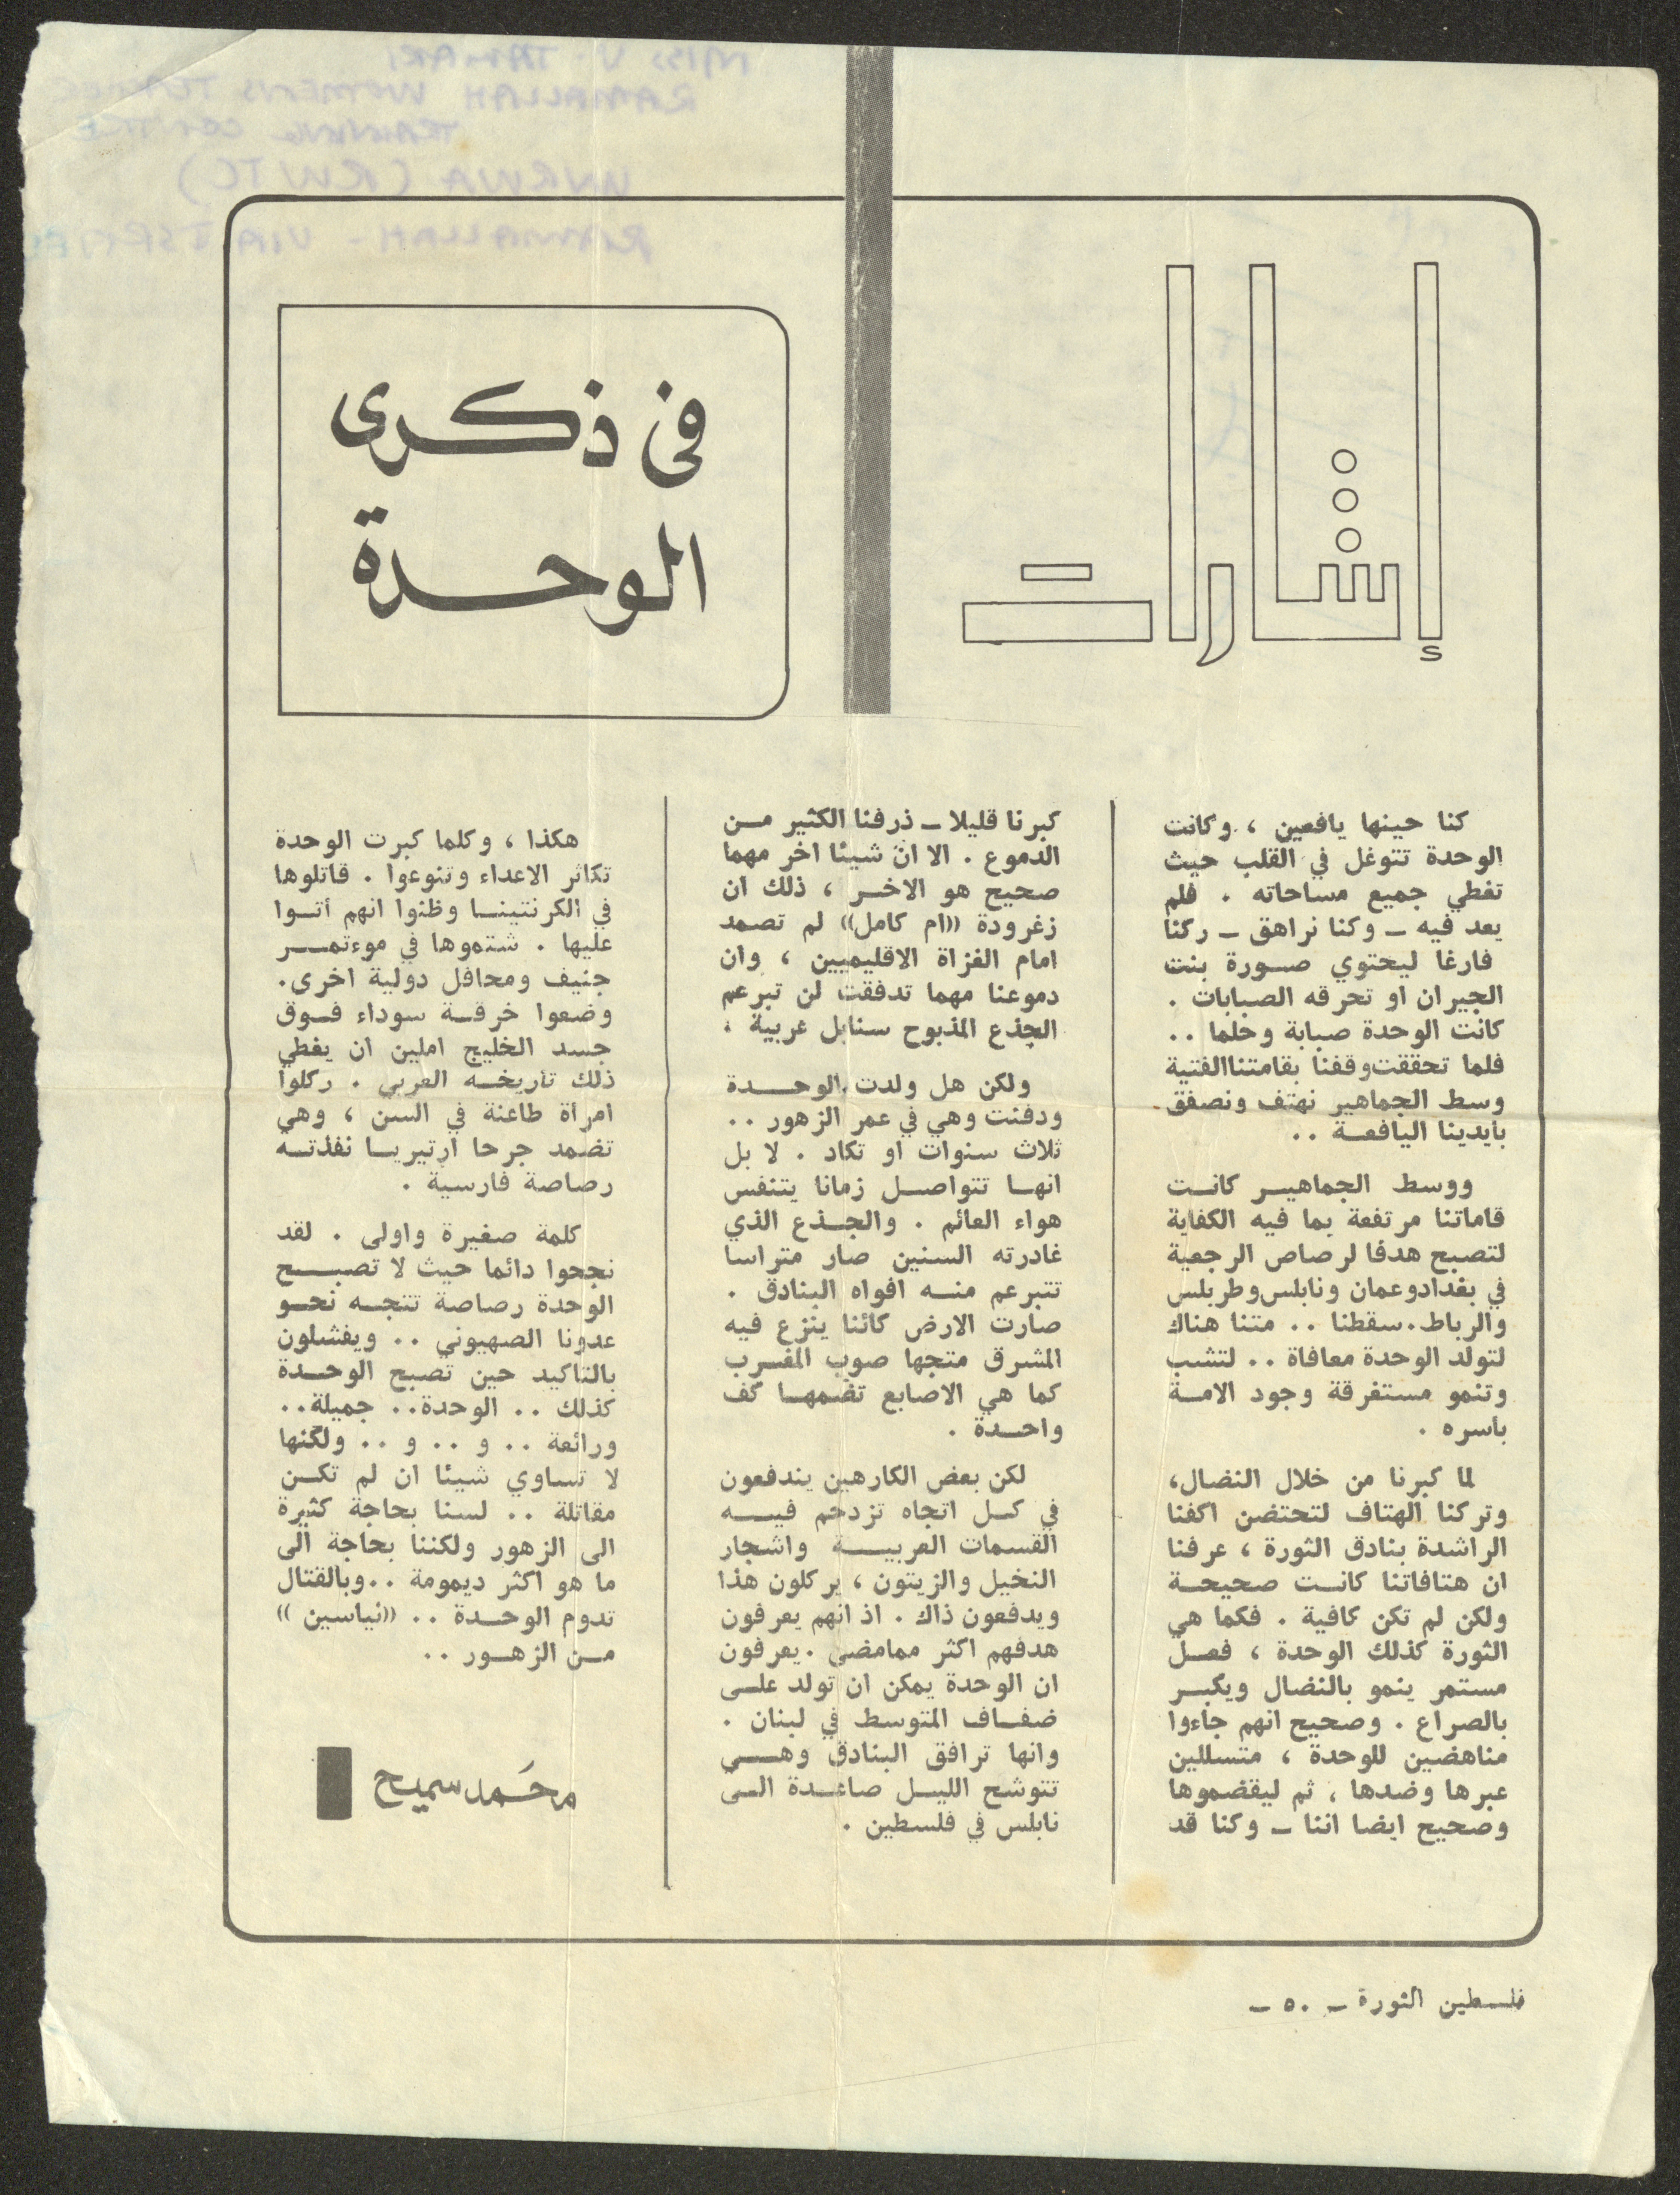 إشارات
في ذكرى
الوحدة
كنا حينها يافعين ، وكانت
الوحدة تتوغل في القلب حيث
تغطي جميع مساحاته . فلم
يعد فيه ــ وكنا نراهق ــ ركنا
فارغا ليحتوي صورة بنت
الجيران او تحرقه الصبابات .
كانت الوحدة صبابة وحلما ..
فلما تحققت وقفنا بقامتنا الفتية
وسط الجماهير نهتف ونصفق
بأيدينا اليافعة ..
ووسط الجماهير كانت
قاماتنا مرتفعة بما فيه الكفاية
لتصبح هدفا لرصاص الرجعية
في بغداد وعمان ونابلس وطرابلس
والرباط . سقطنا .. متنا هناك
لتولد الوحدة معافاة .. لتشب
وتنمو مستغرقة وجود الامة
بأسره .
لما كبرنا من خلال النضال،
وتركنا الهتاف لتحتضن اكفنا
الراشدة بنادق الثورة ، عرفنا
ان هتافاتنا كانت صحيحة
ولكن لم تكن كافية . فكما هي
الثورة كذلك الوحدة ، فعل
مستمر ينمو بالنضال ويكبر
بالصراع . وصحيح انهم جاءوا
مناهضين للوحدة ، متسللين
عبرها وضدها ، ثم ليقضموها
وصحيح ايضا اننا ــ وكنا قد
كبرنا قليلا ــ ذرفنا الكثير من
الدموع . الا ان شيئا اخر مهما
صحيح هو الاخر ، ذلك ان
زغرودة ((ام كامل)) لم تصمد
امام الغزاة الاقليميين ، وان
دموعنا مهما تدفقت لن تبرعم
الجذع المذبوح سنابل عربية .
ولكن هل ولدت الوحدة
ودفنت وهي في عمر الزهور ..
ثلاث سنوات او تكاد . لا بل
انها تتواصل زمانا يتنفس
هواء العالم . والجذع الذي
غادرته السنين صار متراسا
تتبرعم منه افواه البنادق .
صارت الارض كائنا ينزع فيه
المشرق متجها صوب المغرب
كما هي الاصابع تضمها كف
واحدة .
لكن بعض الكارهين يندفعون
في كل اتجاه تزدحم فيه
القسمات العربية واشجار
النخيل والزيتون ، يركلون هذا
ويدفعون ذاك . اذ انهم يعرفون
هدفهم اكثر ممامضى . يعرفون
ان الوحدة يمكن ان تولد على
ضفاف المتوسط في لبنان .
وانها ترافق البنادق وهي
تتوشح الليل صاعدة الى
نابلس في فلسطين .
هكذا ، وكلما كبرت الوحدة
تكاثر الاعداء وتنوعوا . قاتلوها
في الكرنتينا وظنوا انهم أتوا
عليها . شتموها في موءتمر
جنيف ومحافل دولية اخرى.
وضعوا خرقة سوداء فوق
جسد الخليج املين ان يغطي
ذلك تأريخه العربي . ركلوا
امرأة طاعنة في السن ، وهي
تضمد جرحا ارتيريا نفذته
رصاصة فارسية .
كلمة صغيرة واولى . لقد
نجحوا دائما حيث لا تصبح
الوحدة رصاصة تتجه نحو
عدونا الصهيوني .. ويفشلون
بالتاكيد حين تصبح الوحدة
كذلك .. الوحدة.. جميلة..
ورائعة .. و .. و .. ولكنها
لا تساوي شيئا ان لم تكن
مقاتلة .. لسنا بحاجة كثيرة
الى الزهور ولكننا بحاجة الى
ما هو اكثر ديمومة .. وبالقتال
تدوم الوحدة .. ((نياسين ))
من الزهور ..
محمد سميح
فلسطين الثورة ــ ٥٠ ــ